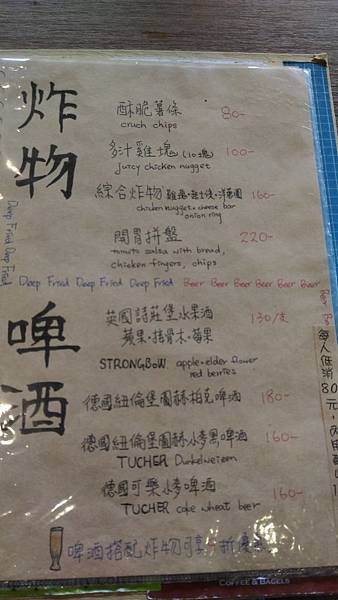 炸物
酥脆薯條 80-
cruch chips
多汁雞塊(10塊) 100-
juicy chicken nugget
綜合炸物 雞塊+起士條+洋蔥圈 160-
chicken nugget+cheese bar
onion ring
開胃拼盤 220-
tomato salsa with bread,
chicken fingers, chips
Deep Fried Deep Fried
Deep Fried Deep Fried Deep Fried Beer Beer Beer Beer Beer Beer
啤酒
英國詩莊堡水果酒 130/支
蘋果・接骨木・莓果
STRONGBOW apple・elder flower
red berries
德國紐倫堡圖赫柏克啤酒 180-
德國紐倫堡圖赫小麥黑啤酒 160-
TUCHER Dunkelweizen
德國可樂小麥啤酒 160-
TUCHER coke wheat beer
啤酒搭配炸物可享
折優
每人低消80元
COFFEE & BAGELS